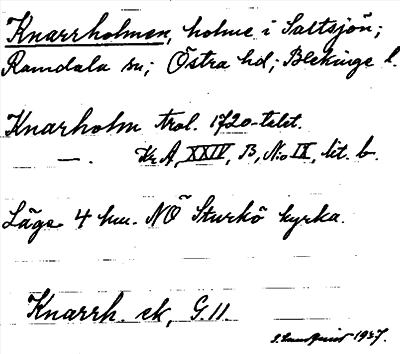 Knarrholmen, holme i Saltsjön;
Ramdala sn; Östra hd; Blekinge l.
Knarholm trol. 1720-talet.
—. Kr A, XXIV, B, No IX, lit. b.
Läge 4 km. NÖ Sturkö kyrka.
Knarrh. ek, G.11.
1937.